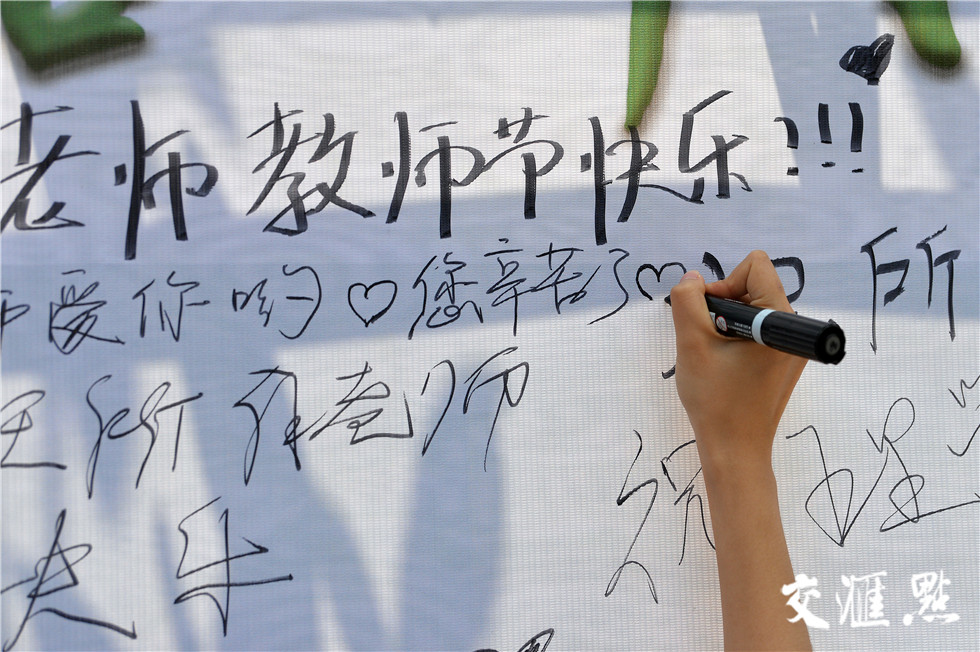 老师教师节快乐!!!
师爱你哟♡您辛苦了♡ 所
所有老师
快乐
交汇點